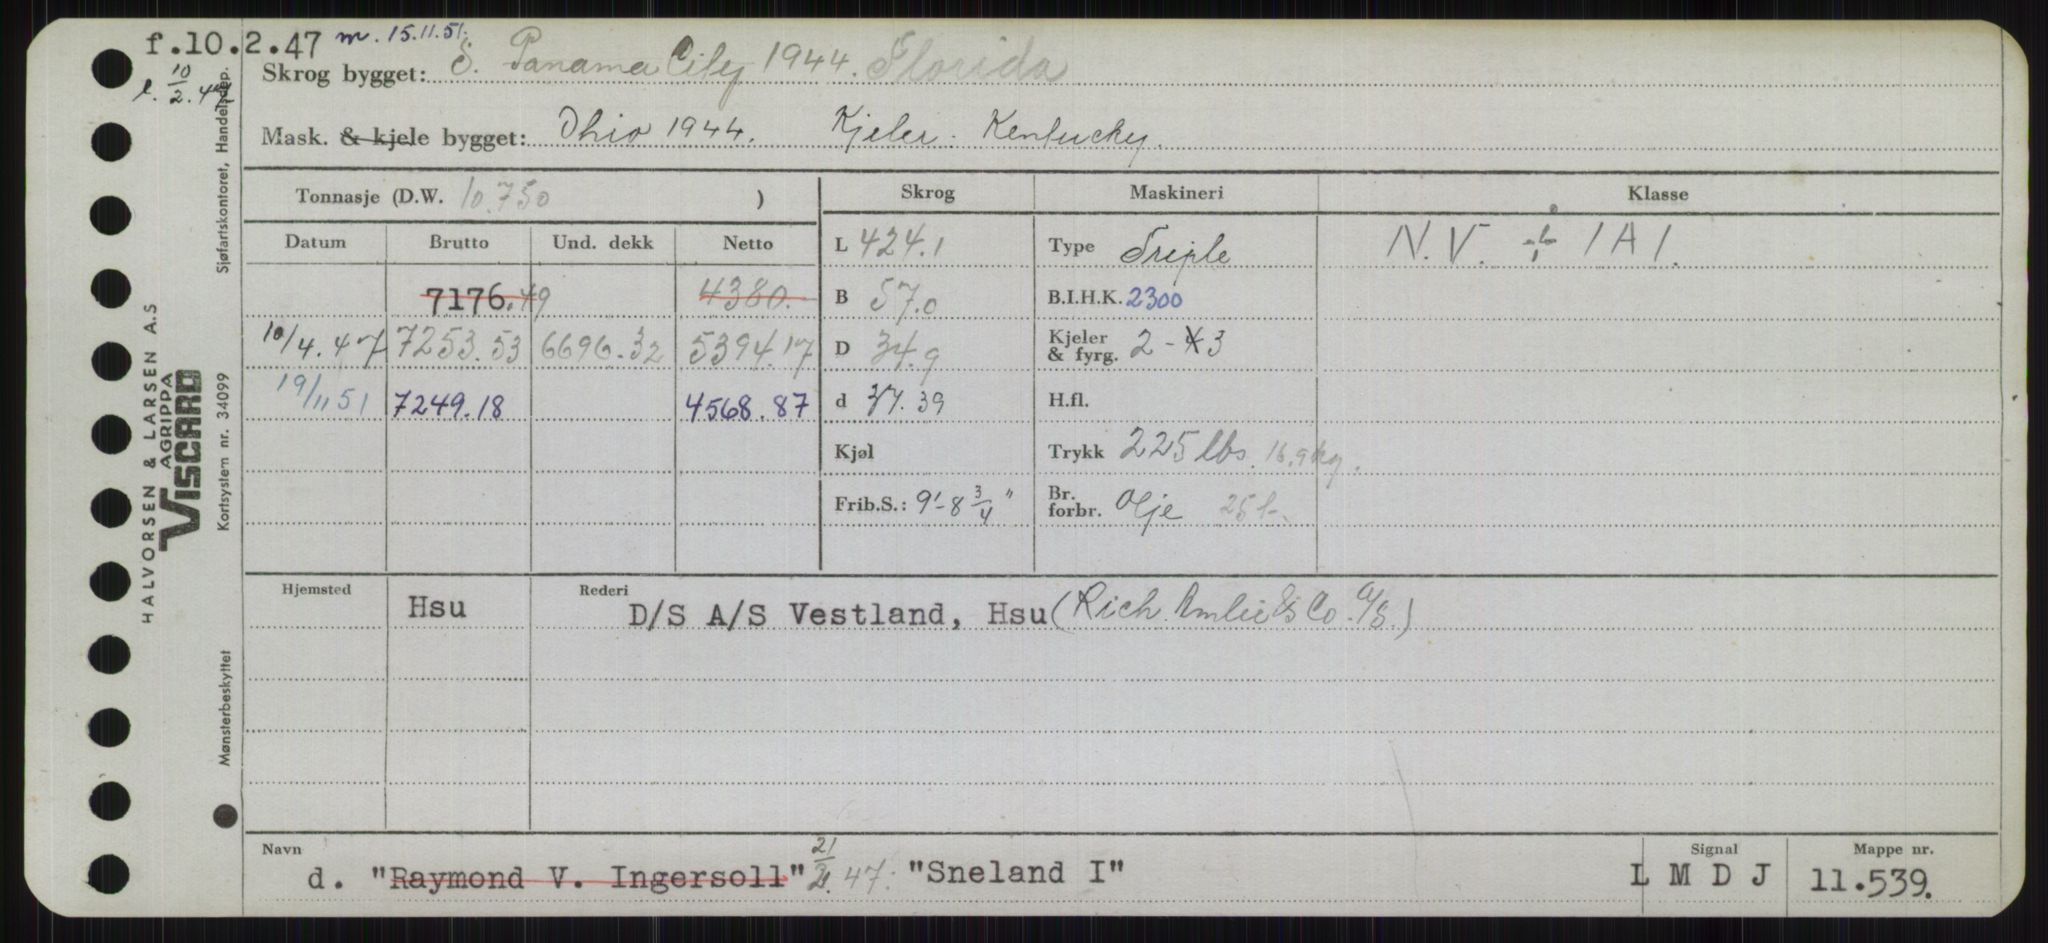 f.10.2.47 m. 15.11.51.
l. 10/2.47
Skrog bygget: S. Panama City 1944. Florida
Mask. & kjele bygget: Ohio 1944. Kjeler. Kentucky.
Tonnasje (D.W. 10.750 )
Skrog Maskineri Klasse
Datum Brutto Und. dekk Netto
L 424.1 Type Triple N.V. + 1A1.
7176.49 4380. B 57.0 B.I.H.K. 2300
10/4.47 7253.53 6696.32 5394.17 D 34.9 Kjeler & fyrg. 2 - 3
19/11 51 7249.18 4568.87 d 37.39 H.fl.
Kjøl Trykk 225 lbs. 16.9 kg.
Frib.S.: 9'-8 3/4" Br. forbr. Olje 26 t.
Hjemsted Hsu Rederi D/S A/S Vestland, Hsu (Rich. Amlie & Co. A/S.)
Navn
d. "Raymond V. Ingersoll" 21/2.47. "Sneland I"
Signal
L M D J
Mappe nr.
11.539.
HALVORSEN & LARSEN A.S
AGRIPPA
VISCARD
Mønsterbeskyttet Kortsystem nr. 34099 Sjøfartskontoret, Handelsdep.